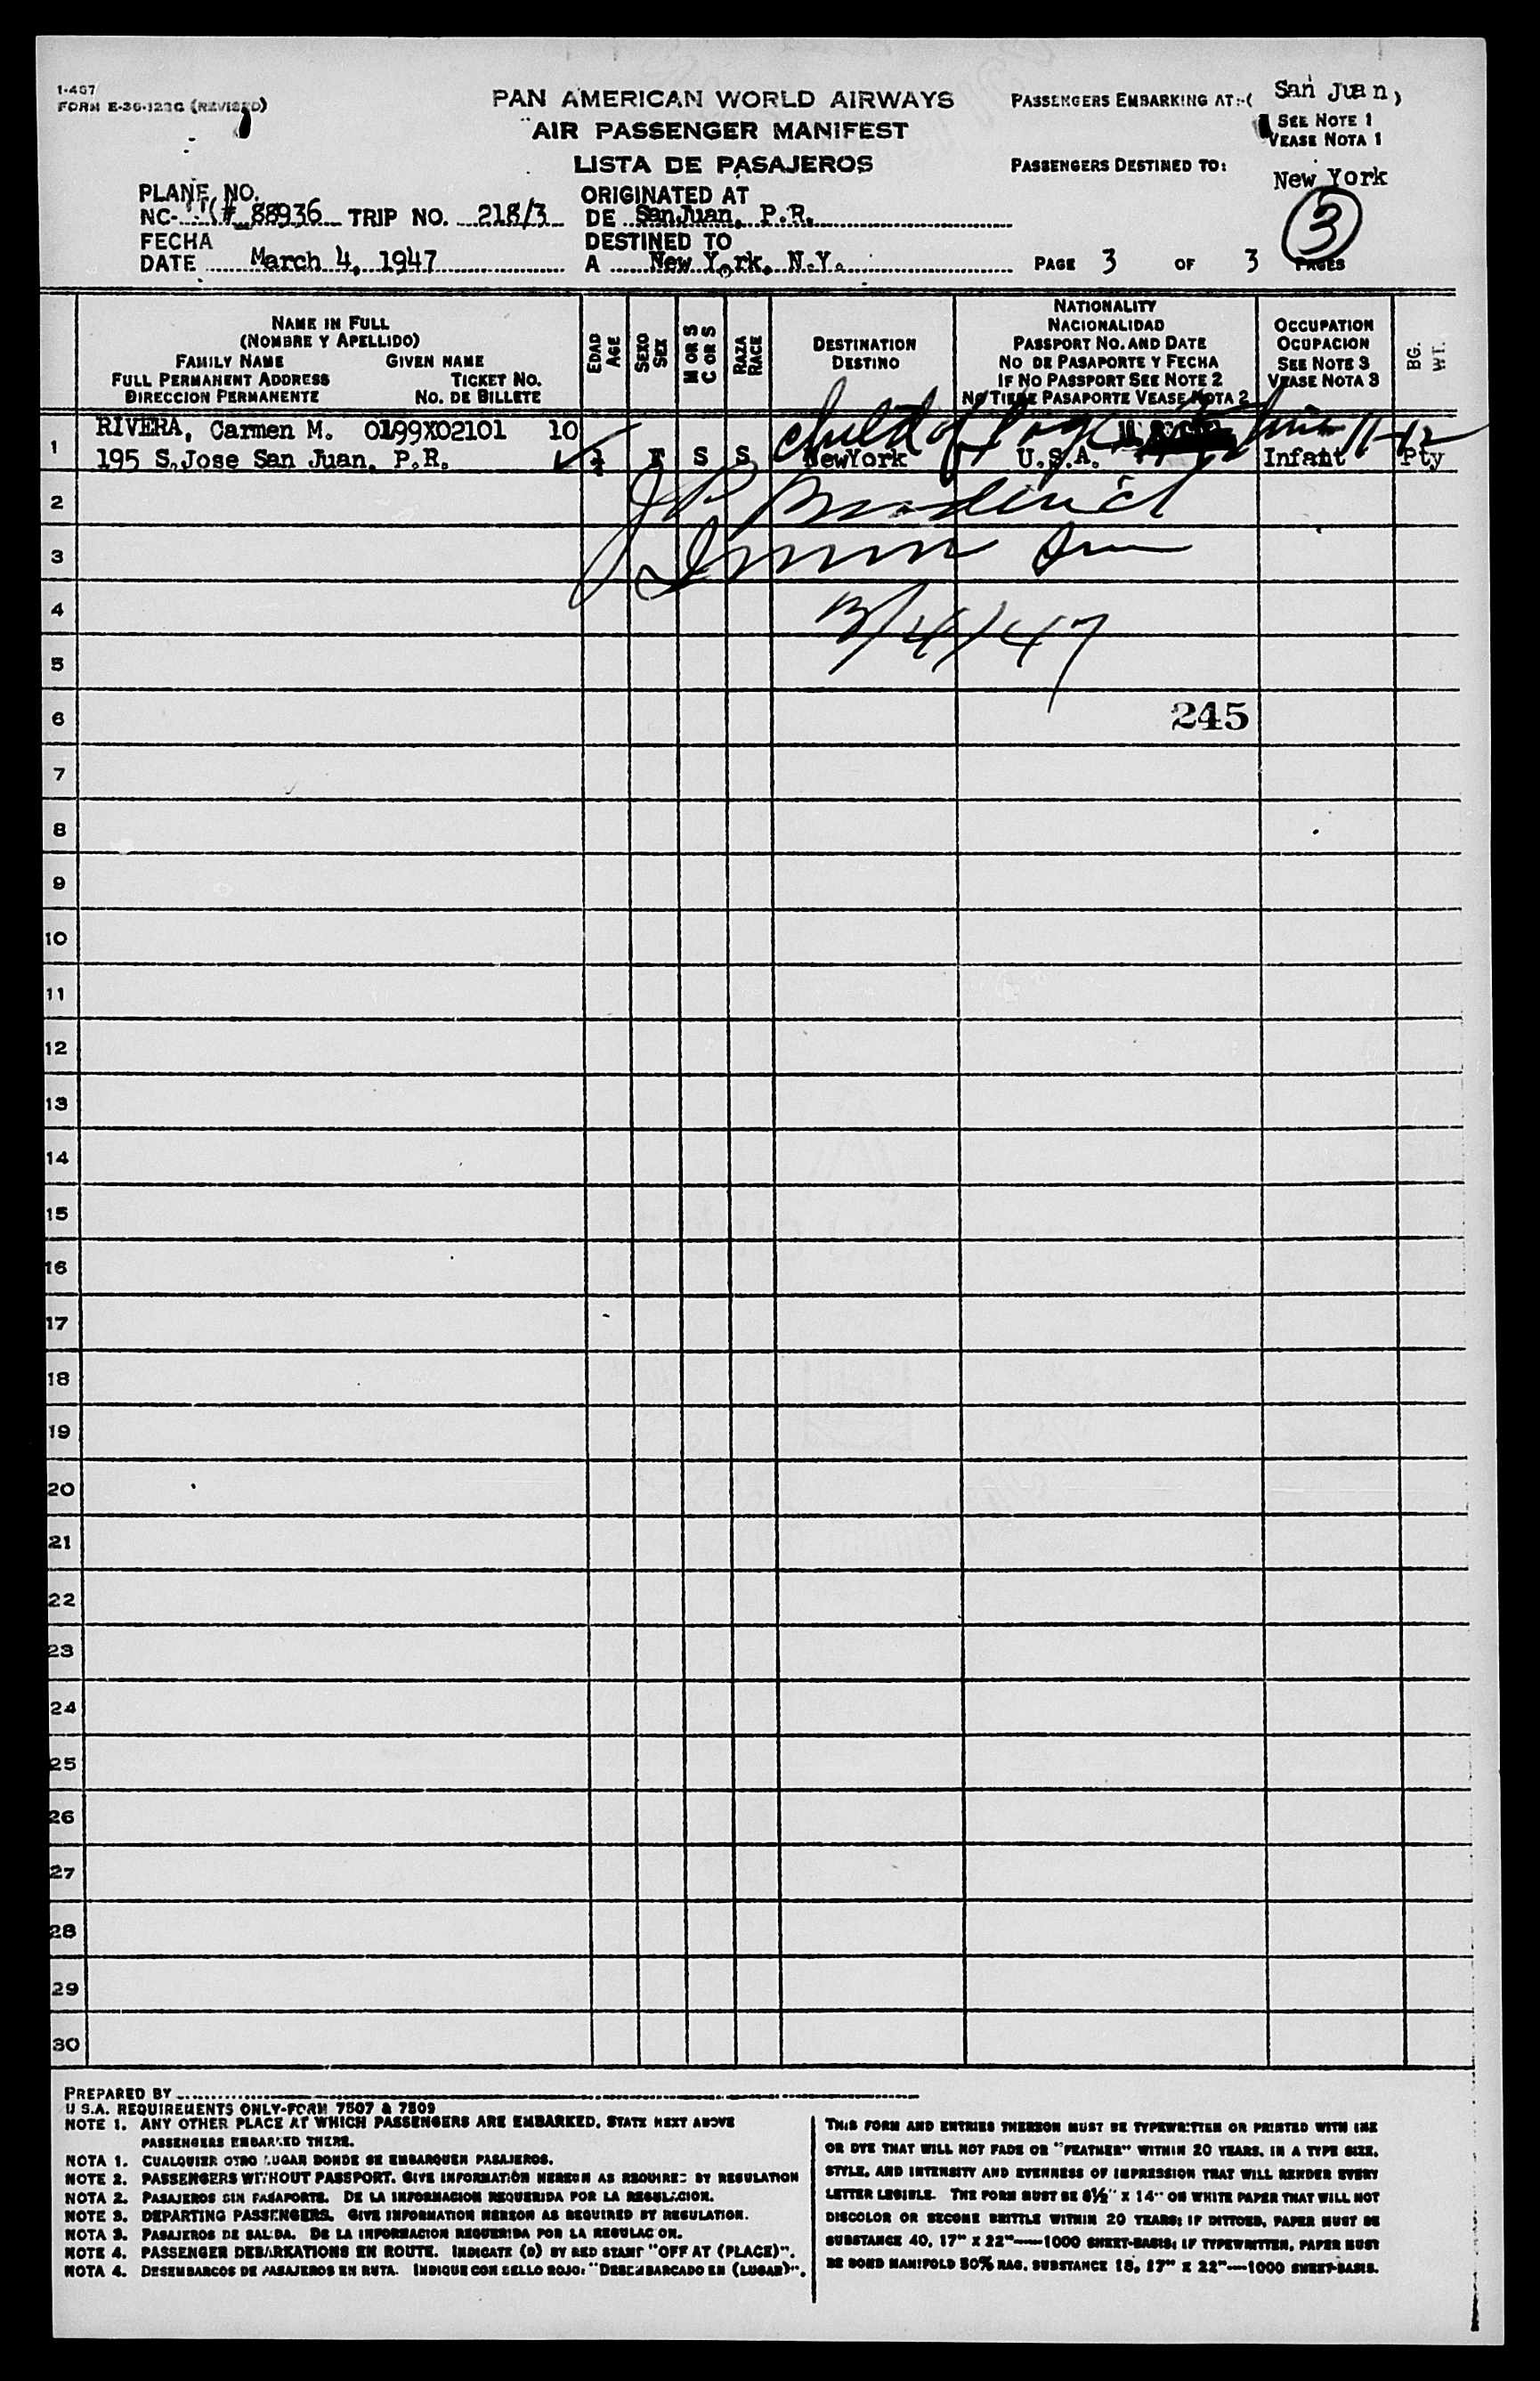 1-467
FORM E-36-123G (REVISED)
PAN AMERICAN WORLD AIRWAYS
AIR PASSENGER MANIFEST
LISTA DE PASAJEROS
PASSENGERS EMBARKING AT:-( San Juan )
SEE NOTE 1
VEASE NOTA 1
PASSENGERS DESTINED TO:
New York
3
PLANE NO.
NC- # 88936 TRIP NO. 218/3
ORIGINATED AT
DE San Juan, P.R.
FECHA
DATE March 4, 1947
DESTINED TO
A New York, N.Y.
PAGE 3 OF 3 PAGES
NAME IN FULL
(NOMBRE Y APELLIDO)
FAMILY NAME GIVEN NAME
FULL PERMANENT ADDRESS TICKET NO.
DIRECCION PERMANENTE NO. DE BILLETE
EDAD
AGE
SEXO
SEX
M OR S
C OR S
RAZA
RACE
DESTINATION
DESTINO
NATIONALITY
NACIONALIDAD
PASSPORT NO. AND DATE
NO DE PASAPORTE Y FECHA
IF NO PASSPORT SEE NOTE 2
NO TIENE PASAPORTE VEASE NOTA 2
OCCUPATION
OCUPACION
SEE NOTE 3
VEASE NOTA 3
BG.
WT.
child of page line 11-12
1 RIVERA, Carmen M. 0199X02101 10
195 S.Jose San Juan, P.R. F S S NewYork U.S.A. Infant Pty
2
3
4
3/4/47
5
6 245
7
8
9
10
11
12
13
14
15
16
17
18
19
20
21
22
23
24
25
26
27
28
29
30
PREPARED BY
U S.A. REQUIREMENTS ONLY-FORM 7507 & 7509
NOTE 1. ANY OTHER PLACE AT WHICH PASSENGERS ARE EMBARKED, STATE NEXT ABOVE
PASSENGERS EMBARKED THERE.
NOTA 1. CUALQUIER OTRO LUGAR DONDE SE EMBARQUEN PASAJEROS.
NOTE 2. PASSENGERS WITHOUT PASSPORT. GIVE INFORMATION HEREON AS REQUIRED BY REGULATION
NOTA 2. PASAJEROS SIN PASAPORTE. DE LA INFORMACION REQUERIDA POR LA REGULACION.
NOTE 3. DEPARTING PASSENGERS. GIVE INFORMATION HEREON AS REQUIRED BY REGULATION.
NOTA 3. PASAJEROS DE SALIDA. DE LA INFORMACION REQUERIDA POR LA REGULACION.
NOTE 4. PASSENGER DEBARKATIONS EN ROUTE. INDICATE (D) BY RED STAMP "OFF AT (PLACE)".
NOTA 4. DESEMBARCOS DE PASAJEROS EN RUTA. INDIQUE CON SELLO ROJO: "DESEMBARCADO EN (LUGAR)".
THIS FORM AND ENTRIES THEREON MUST BE TYPEWRITTEN OR PRINTED WITH INK
OR DYE THAT WILL NOT FADE OR "FEATHER" WITHIN 20 YEARS, IN A TYPE SIZE,
STYLE, AND INTENSITY AND EVENNESS OF IMPRESSION THAT WILL RENDER EVERY
LETTER LEGIBLE. THE FORM MUST BE 8½" X 14" ON WHITE PAPER THAT WILL NOT
DISCOLOR OR BECOME BRITTLE WITHIN 20 YEARS; IF DITTOED, PAPER MUST BE
SUBSTANCE 40, 17" X 22"——1000 SHEET-BASIS; IF TYPEWRITTEN, PAPER MUST
BE BOND MANIFOLD 50% RAG, SUBSTANCE 18, 17" X 22"—1000 SHEET-BASIS.